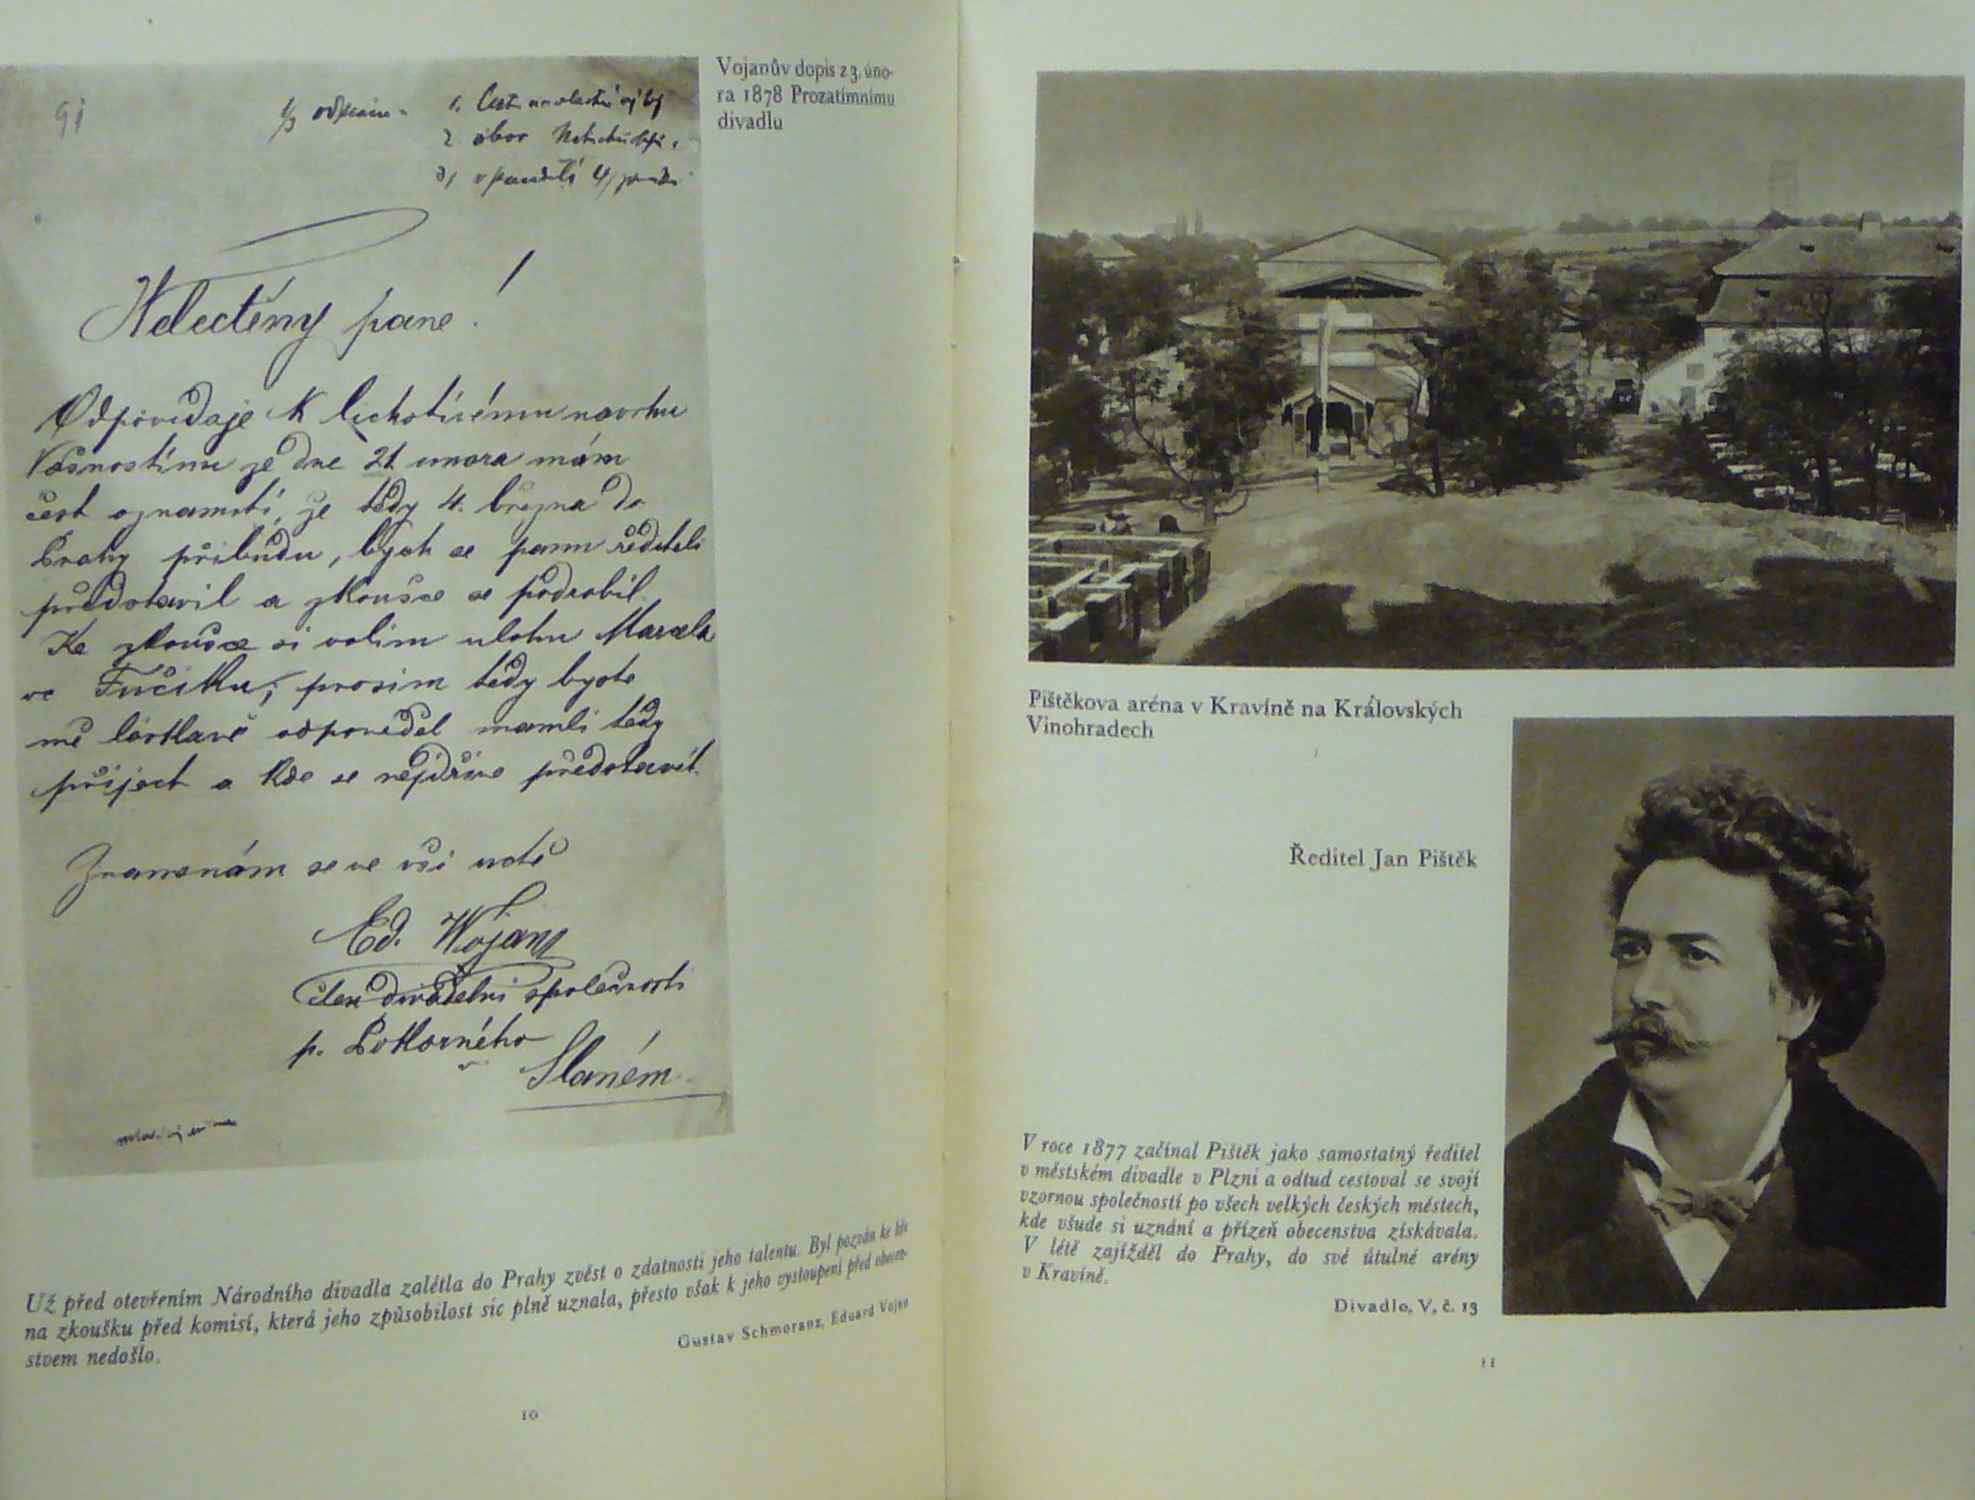 Vojanův dopis z 3. úno-
ra 1878 Prozatímnímu
divadlu
91
1/3
1.
2. obor
3)
Velectěný pane!
Odpovidaje k lichotivému navrhu
Vašnostinu ze dne 21 unora mám
čest oznamiti, že tedy 4. března do
Prahy přibudu, bych se panu řediteli
představil a zkoušce se podrobil.
Ke zkoušce si volim ulohu Marcela
ve Fučiku, prosim tedy byste
mě láskavě odpověděl mamli tedy
přiject a kde se nejdříve představit.
Znamenám se ve vší uctě
Ed. Wojan
člen divadelni společnosti
p. Pokorného
Slaném
Už před otevřením Národního divadla zalétla do Prahy zvěst o zdatnosti jeho talentu. Byl pozván ke hře
na zkoušku před komisí, která jeho způsobilost sic plně uznala, přesto však k jeho vystoupení před obecen-
stvem nedošlo.
Gustav Schmoranz, Eduard Vojan
10
Pištěkova aréna v Kravíně na Královských
Vinohradech
Ředitel Jan Pištěk
V roce 1877 začínal Pištěk jako samostatný ředitel
v městském divadle v Plzni a odtud cestoval se svojí
vzornou společností po všech velkých českých městech,
kde všude si uznání a přízeň obecenstva získávala.
V létě zajížděl do Prahy, do své útulné arény
v Kravíně.
Divadlo, V, č. 13
11